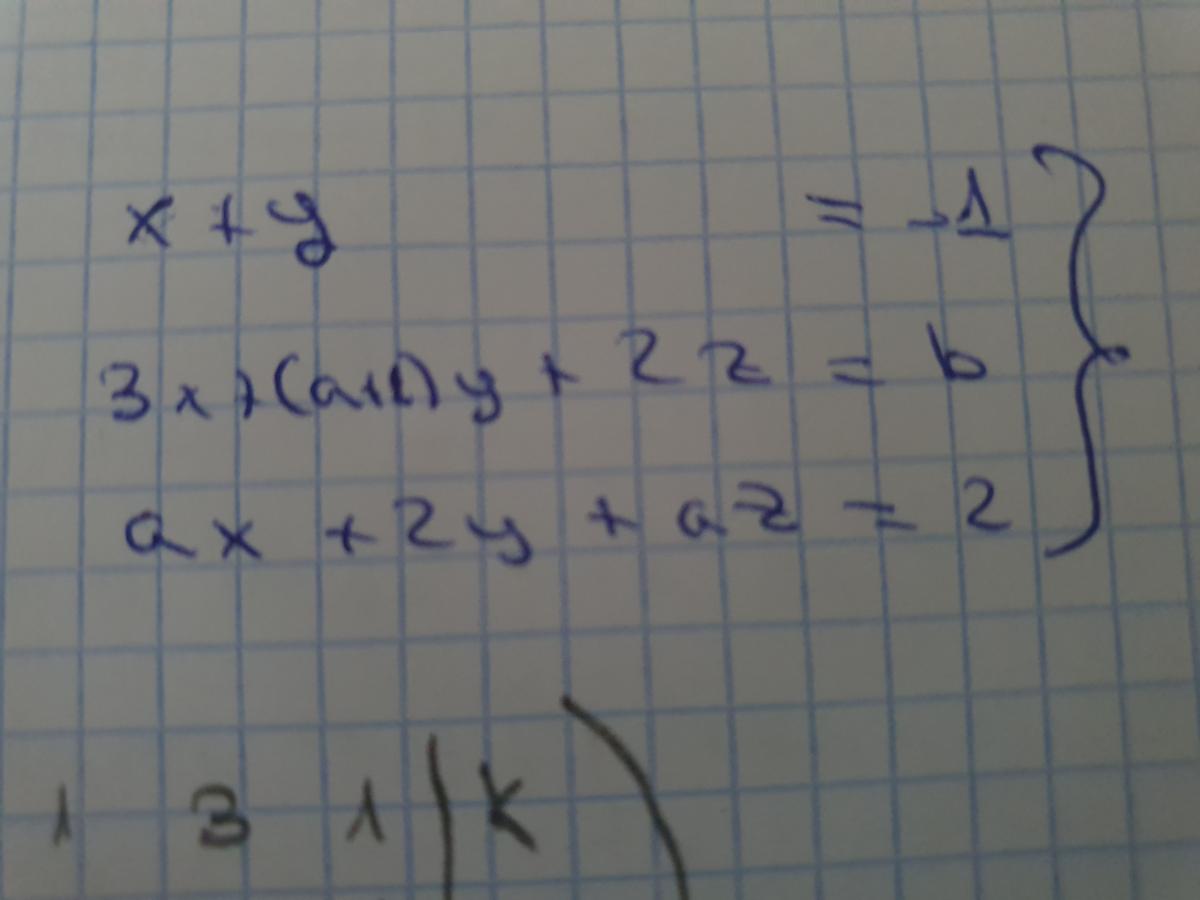 x + y = -1
3x + (a+1)y + 2z = b
ax + 2y + az = 2
1 3 1 | K )